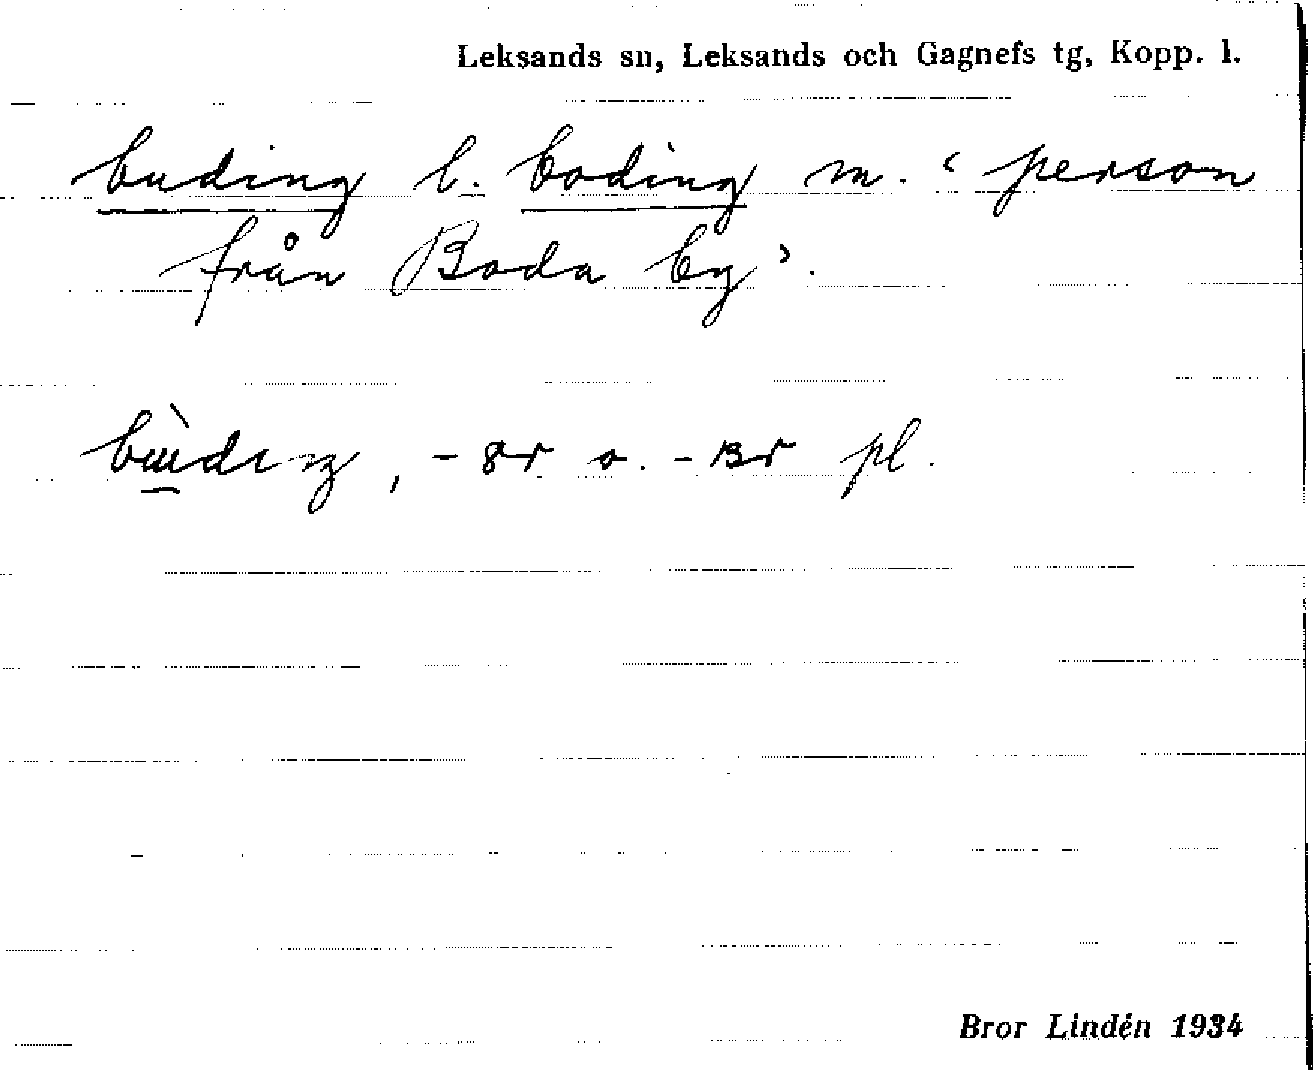 Leksands sn, Leksands och Gagnefs tg, Kopp. l.
buding l. boding m. ‘person
från Boda by’.
pl.
Bror Lindén 1934